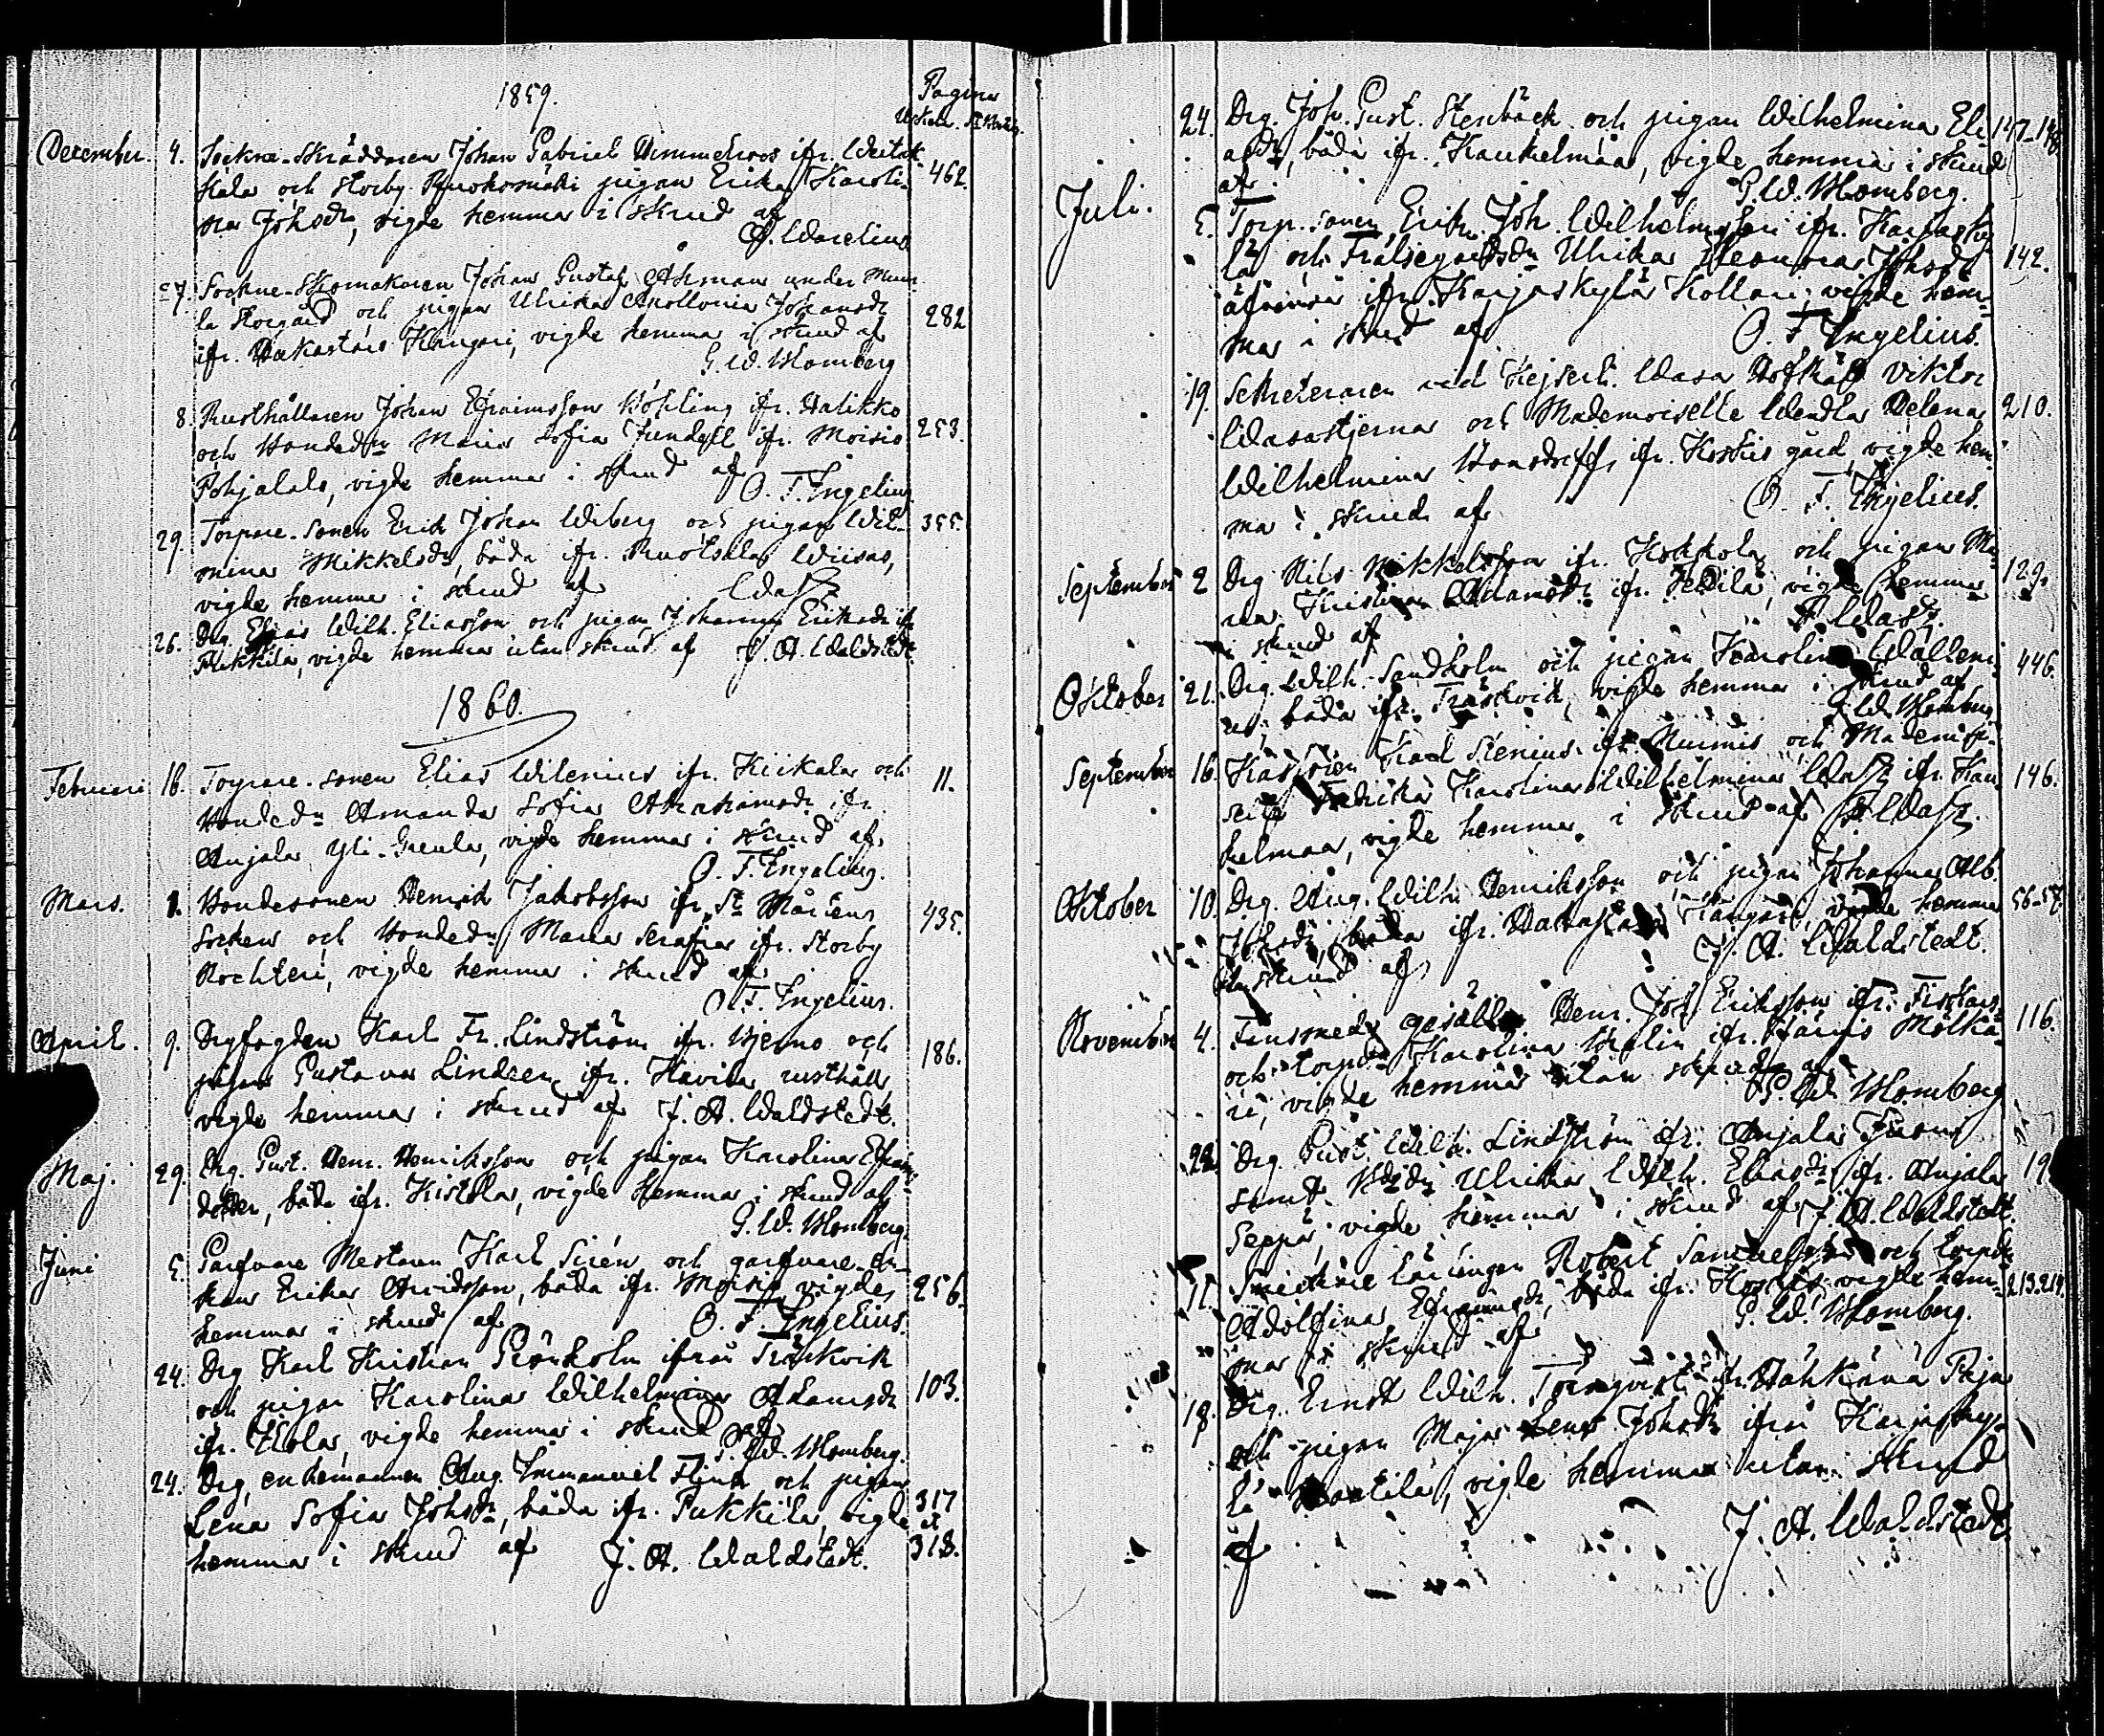 1859.
Pagina
December. 4. Sockne-Skräddaren Johan Gabriel Himmelroos ifr.
kala och Storby Ruokomäki pigan Erika Karoli- 462.
na Johsdr, vigde hemma i skrud af
A. Warelius
7. Sockne-Skomakaren Johan Gustaf Ahman under
la Storgård och pigan Ulrika Apollonia Johansdr 282
ifr. Hakastaro Kangari, vigde hemma i skrud af
G. W. Blomberg
8. Rusthållaren Johan Efraimsson Böhling ifr. Halikko
och Bondedn Maria Sofia ifr. Moisio 253.
Pohjalals, vigde hemma i skrud af
O. F. Ingelius.
29. Torpare-sonen Erik Johan Wiberg och pigan Wil- 355.
mina Mikkelsdr, båda ifr. Ruotsala
vigde hemma i skrud af
26. Drg Elias Wilh. Eliasson och pigan Johanna Eriksdr ifr
vigde hemma utan skrud af J. A. Waldstedt.
1860.
Februari 16. Torpare-sonen Elias Wilenius ifr. Kiikala och 11.
Bondedn Amanda Sofia Abrahamsdr ifr
Anjala Yli- vigde hemma i skrud af
O. F. Ingelius.
Mars. 1. Bondesonen Henrik Jakobsson ifr. St Mårtens 435.
Socken och Bondedn Maria Serafia ifr. Storby
vigde hemma i skrud af
O. F. Ingelius.
April. 9. Drgfogden Karl Fr. Lindström ifr. Bjerno och 186.
pigan Gustava Lindeen ifr. rusthåll
vigde hemma i skrud af J. A. Waldstedt.
Maj. 29. Drg. Gust. Henr. Henriksson och pigan Karolina Efraims-
dotter, båda ifr. Kistola, vigde hemma i skrud af
G. W. Blomberg.
Juni 5. Garfvare Mestaren Karl Sirén och garfvare-en-
kan Erika Arvidsson, båda ifr. Moisio vigde 256.
hemma i skrud af
O. F. Ingelius.
24. Drg Karl Kristian Grönholm ifrån Träskvik
och pigan Karolina Wilhelmina Adamsdr 103.
ifr. vigde hemma i skrud af
G. W. Blomberg.
24. Drg, enkemannen Aug. Immanuel Flink och pigan
Lena Sofia Johsdr, båda ifr. Pukkila, vigde 317 et
hemma i skrud af J. A. Waldstedt. 318.
24. Drg. Joh. Gust. Stenbäck och pigan Wilhelmina Eli- 147-148
asdr, båda ifr. Kaukelmaa, vigde hemma i skrud
af G. W. Blomberg.
Juli. 5. Torp. sonen Erik Joh. Wilhelmsson ifr. Karjasky-
lä och Frälsegårdsdn Ulrika Eleonora Johsdr 142.
ifr. Karjaskylä Kollari, vigde hem-
ma i skrud af O. F. Ingelius.
19. Sekreteraren vid Kejserl. Wasa Hofrätt Viktor
Wasastjerna och Mademoiselle Wendla Helena 210.
Wilhelmina Bonsdorff, ifr. Koskis gård, vigde hem-
ma i skrud af O. F. Ingelius.
September 2 Drg Nils Mikkelsson ifr. Kokkola och pigan Ma- 129.
ria Kristina Adamsdr ifr. vigde hemma
i skrud af
Oktober 21. Drg. Wilh. Sandholm och pigan Karolina Walleni- 446.
us, båda ifr. Träskvik, vigde hemma i skrud af
G. W. Blomberg
September 16. Karl Stenius ifr. Nurmis och Mademoi-
selle Fredrika Karolina Wilhelmina ifr. Kau- 146.
kelmaa, vigde hemma i skrud af
Oktober 10. Drg. Aug. Wilh. Henriksson och pigan Johanna Alb.
Johsdr, båda ifr. Kangari, vigde hemma 56-57.
utan skrud af J. A. Waldstedt.
November 4. gesällen Henr. Joh. Eriksson ifr. Fiskars
och torpdn Karolina ifr. 116.
ri, vigde hemma utan skrud af
G. W. Blomberg
22. Drg Gust. Wilh. Lindström ifr. Anjala
samt Ulrika Wilh. Eliasdr ifr. Anjala 19
Seppä, vigde hemma i skrud af J. A. Waldstedt.
Smickare Lärlingen Robert Samuelsson och torpdn
Adolfina Efraimsdr, båda ifr. Koskis, vigde hem- 213.214.
ma i skrud af G. W. Blomberg.
18. Drg Ernst Wilh. Törnqvist ifr. Hähkänä
och pigan Maja Lena Johsdr ifrån Karjasky-
lä vigde hemma utan skrud
af J. A. Waldstedt.